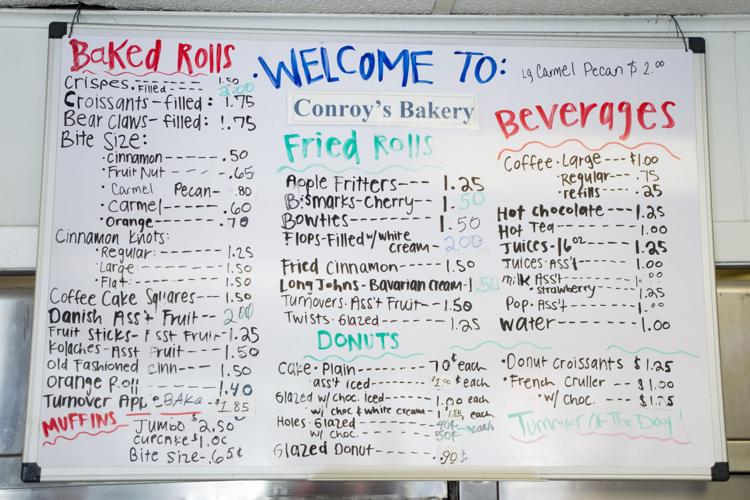 WELCOME TO:
Conroy's Bakery
Lg Carmel Pecan $ 2.00
Baked Rolls
Crispes. Filled ---- 1.50 2.00
Croissants - filled: 1.75
Bear Claws - filled: 1.75
Bite Size:
• cinnamon ------ .50
• Fruit Nut -- - -- .65
• Carmel Pecan -- .80
• Carmel ------ .60
• Orange ------ .70
Cinnamon Knots:
• Regular: ------ 1.25
• Large: ------ 1.50
• Flat: ------ 1.50
Coffee Cake Squares -- 1.50
Danish Ass't Fruit -- 2.00
Fruit sticks - Asst Fruit -- 1.25
Kolaches - Asst Fruit ---- 1.50
Old Fashioned Cinn --- 1.50
Orange Roll ------ 1.40
Turnover App • BAKa - $1.85
MUFFINS
Jumbo $2.50
cupcake $1.00
Bite size - .65¢
Fried Rolls
Apple Fritters --- 1.25
Bismarks - Cherry -- 1.50
Bowties ------ 1.50
Flops - Filled w/ white
cream - 2.00
Fried Cinnamon ---- 1.50
Long Johns - Bavarian cream - 1.50
Turnovers - Ass't Fruit -- 1.50
Twists - Glazed ---- 1.25
DONUTS
Cake • Plain ------ 70¢ each
ass't iced ---- $1.00 each
Glazed w/ choc. Iced ---- 1.00 each
w/ choc & white cream -- each
Holes - Glazed ------ 40¢ each
w/ choc. ------ 50¢
Glazed Donut ------ .90¢
Beverages
Coffee • Large --- $1.00
• Regular --- .75
• refills --- .25
Hot chocolate ---- 1.25
Hot Tea ---- 1.00
Juices - 16oz --- 1.25
Juices - Ass't ---- 1.00
milk Asst
• strawberry --- 1.25
Pop - Ass't ---- 1.00
water ---- 1.00
• Donut Croissants $1.25
• French Cruller -- $1.00
• w/ choc. --- $1.75
Turnover Of The Day!